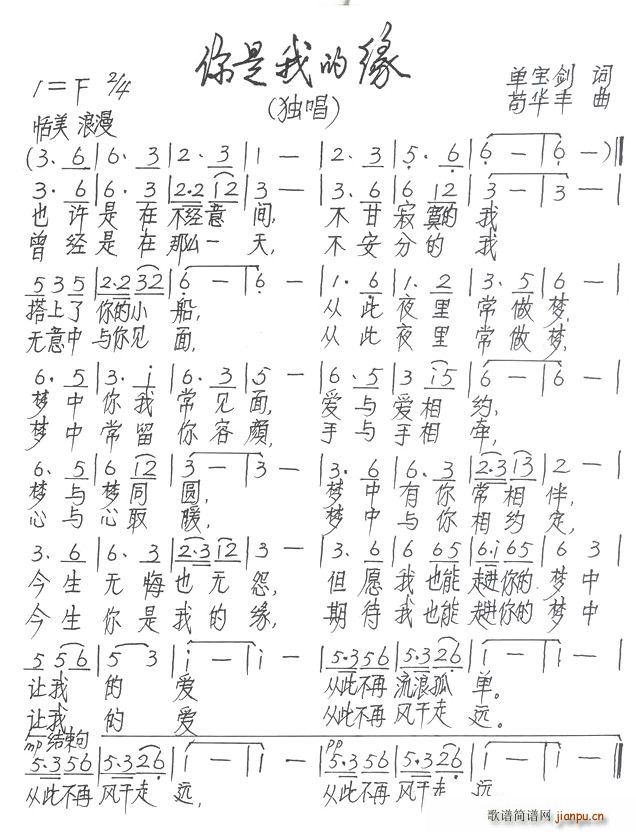 你是我的缘
(独唱)
1=F 2/4
单宝剑 词
苟华丰 曲
恬美 浪漫
(3. 6|6. 3|2. 3|1 —|2. 3|5. 6|6 —|6 —)‖
3. 6|6. 3|2·2 12|3 —|3. 6|6 12|3 —|3 —|
也许是在不经意间, 不甘寂寞的我
曾经是在那么一天, 不安分的我
535|2·2 32|6 —|6 —|1. 6|1. 2|3. 5|6 —|
搭上了你的小船, 从此夜里常做梦,
无意中与你见面, 从此夜里常做梦,
6. 5|3. i|6. 3|5 —|6. 5|3 i5|6 —|6 —|
梦中你我常见面, 爱与爱相约,
梦中常留你容颜, 手与手相牵,
6. 5|6 i2|3 —|3 —|3. 6|6. 3|2·3 i3|2 —|
梦与梦同圆, 梦中有你常相伴,
心与心取暖, 梦中与你相约定,
3. 6|6. 3|2·3 i2|3 —|3. 6|6 65|6·i 65|6 3|
今生无悔也无怨, 但愿我也能走进你的梦中
今生你是我的缘, 期待我也能走进你的梦中
5 56|5 3|i —|i —|5·3 56|5·3 26|1 —|1 —|
让我的爱 从此不再流浪孤单。
让我的爱 从此不再风干走远。
mp 结束句 pp
5·3 56|5·3 26|1 —|1 —|5·3 56|5·3 26|1 —|1 —‖
从此不再风干走远, 从此不再风干走远
歌谱简谱网
jianpu.cn